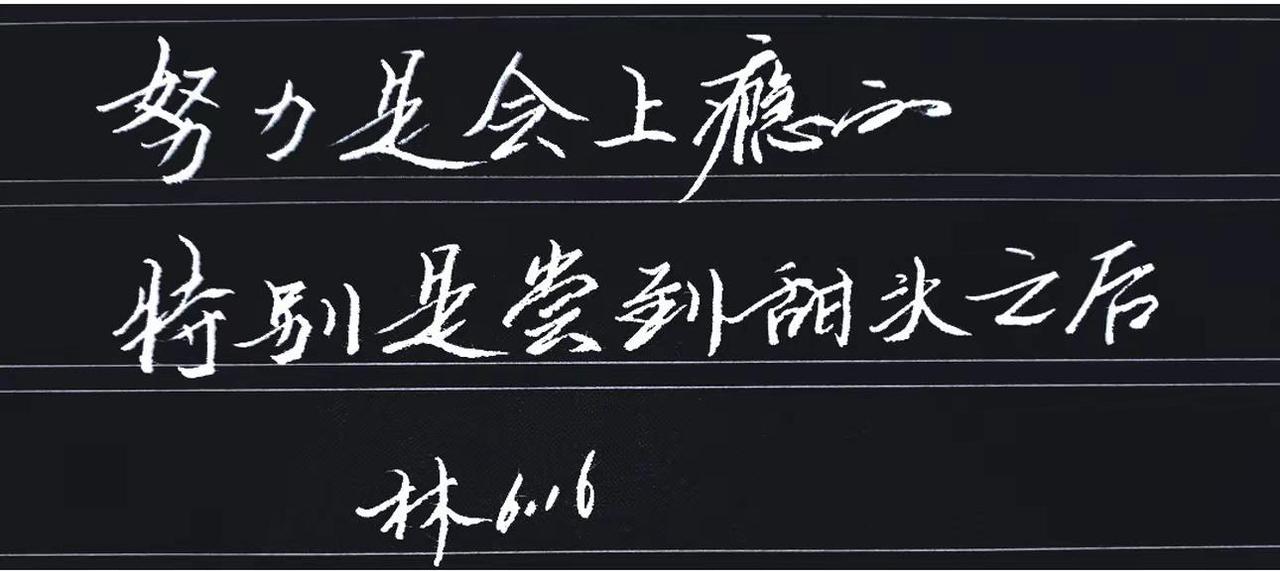 努力是会上瘾的
特别是尝到甜头之后
林6.16